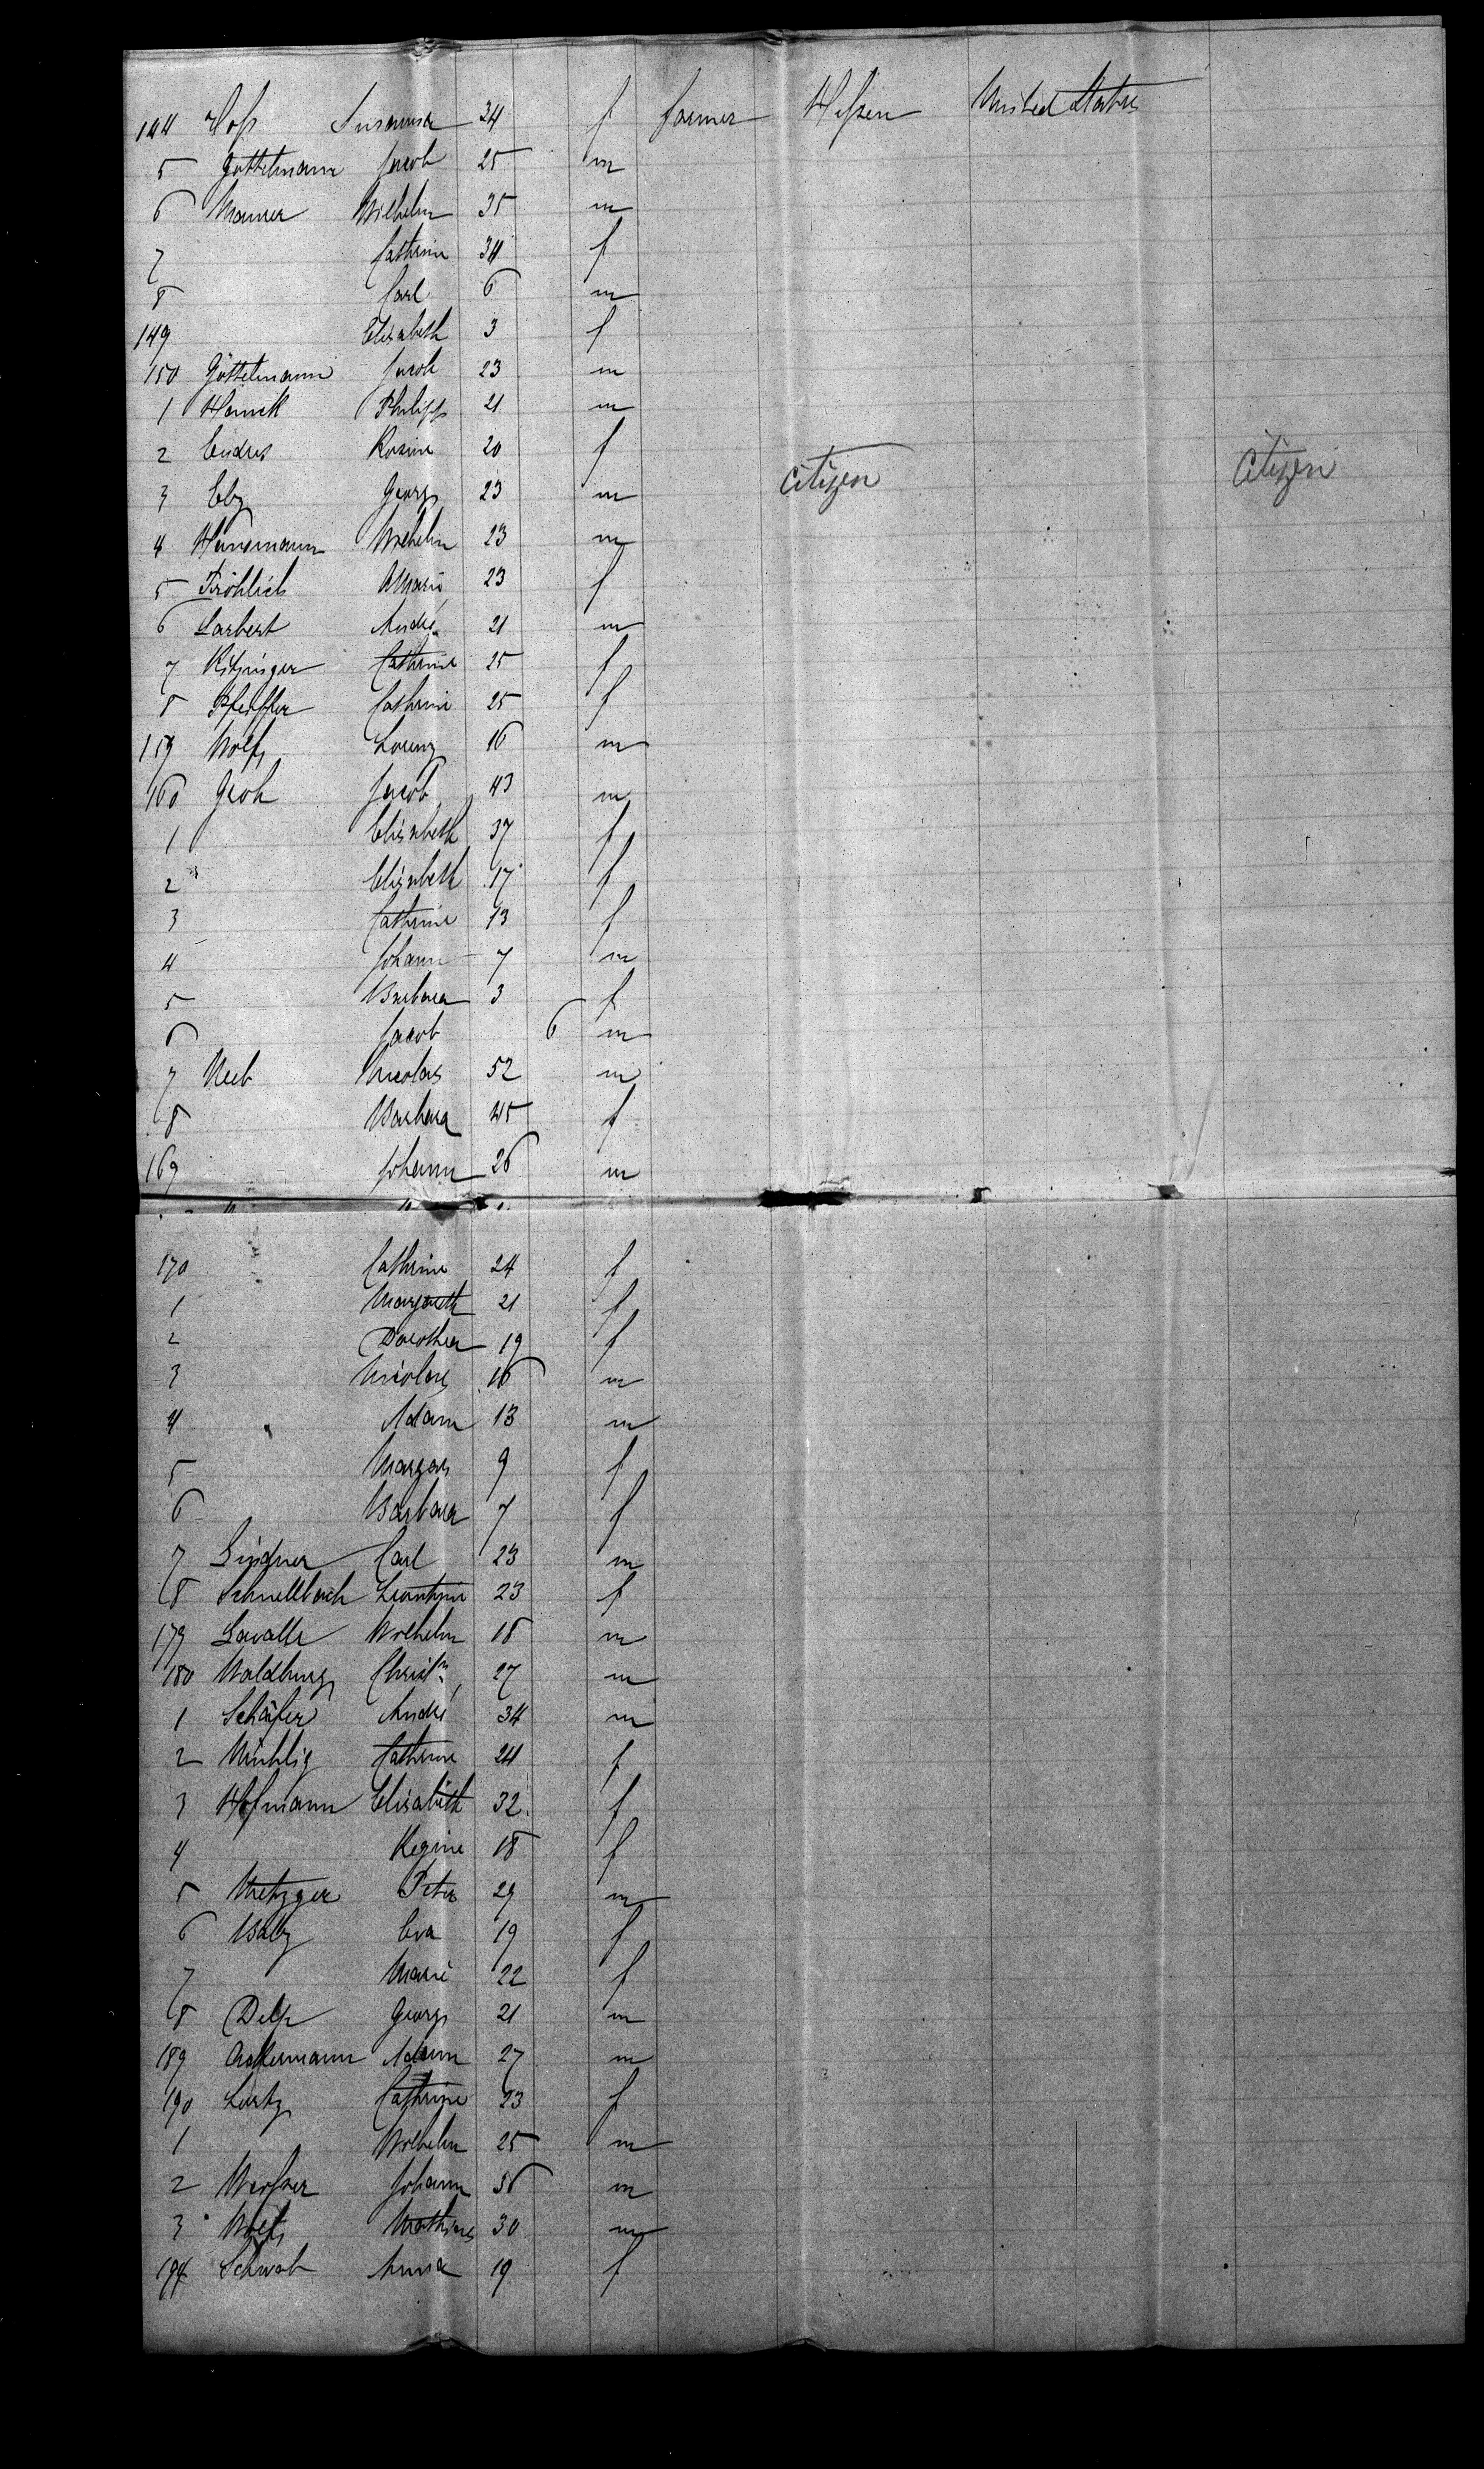 144 Hoß Susanna 24 f farmer Hessen United States
5 Göttelmann Jacob 25 m
6 Maurer Wilhelm 35 m
7 Cathrine 34 f
8 Carl 6 m
149 Elisabeth 3 f
150 Göttelmann Jacob 23 m
1 Hamell Philipp 21 m
2 Endres Rosine 20 f
3 Elz Georg 23 m Citizen Citizen
4 Hannemann Wilhelm 23 m
5 Fröhlich Marie 23 f
6 Larbert André 21 m
7 Kitzinger Cathrine 25 f
8 Pfeiffer Cathrine 25 f
159 Wolf Lorenz 16 m
160 Groh Jacob 43 m
1 Elisabeth 37 f
2 Elisabeth 17 f
3 Cathrine 13 f
4 Johann 7 m
5 Barbara 3 f
6 Jacob 6 m
7 Neeb Nicolas 52 m
8 Barbara 45 f
169 Johann 26 m
170 Cathrine 24 f
1 Margareth 21 f
2 Dorothea 19 f
3 Nicolas 16 m
4 Adam 13 m
5 Margar 9 f
6 Barbara 7 f
7 Lindner Carl 23 m
8 Schnellbach Leontine 23 f
179 Lavalle Wilhelm 18 m
180 Waldburg Christn 27 m
1 Schäfer André 34 m
2 Mühlig Catherine 24 f
3 Hofmann Elisabeth 32 f
4 Regine 18 f
5 Metzger Peter 29 m
6 Balz Eva 19 f
7 Marie 22 f
8 Delp Georg 21 m
189 Ackermann Adam 27 m
190 Lertz Cathrine 23 f
1 Wilhelm 25 m
2 Johann 56 m
3 Wolf Mathias 30 m
194 Schwab Anna 19 f